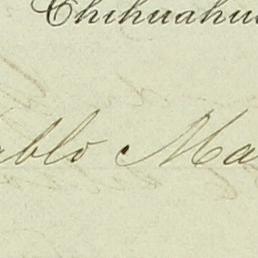 Chihuahua
ablo Ma